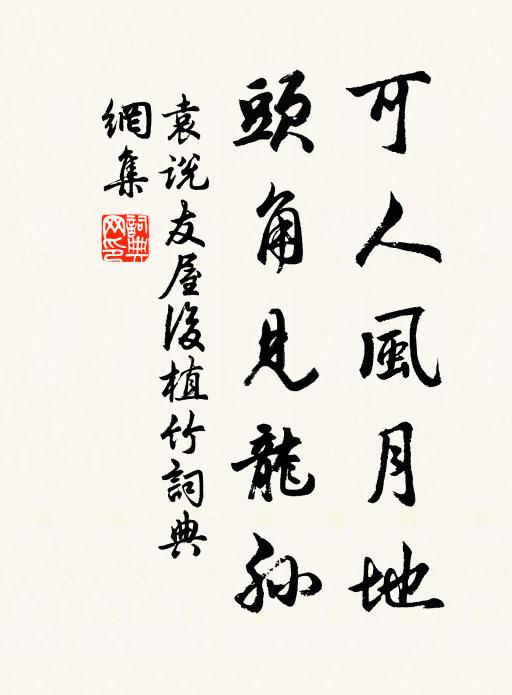 可人風月地
頭角見龍孫
袁說友屋後植竹詞典
網集
詞典網印